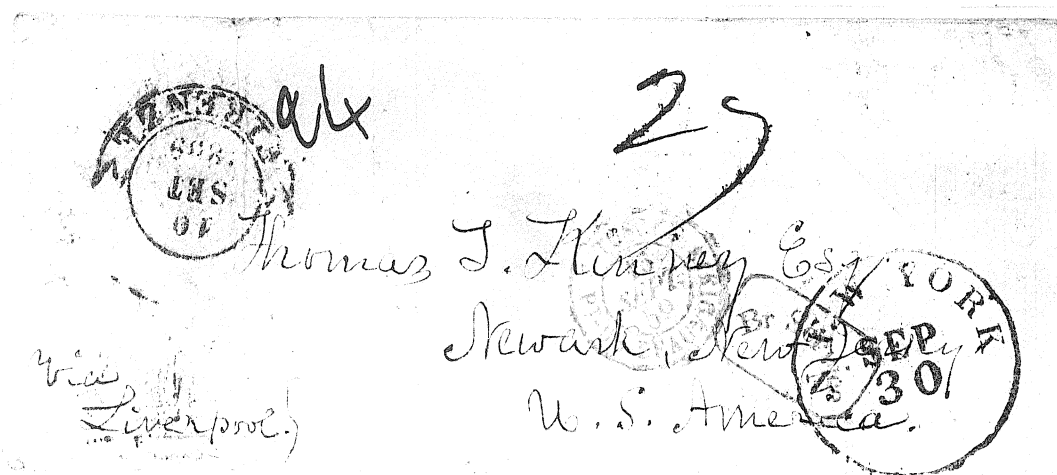 FIRENZE
SET
10
24
Thomas T. Kinney Esq
Newark, New Jersey
U. S. America.
via
Liverpool.
NEW YORK
SEP
30